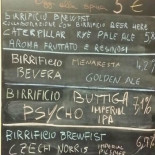 5 €
BIRRIFICIO BREWFIST
COLLABORAZIONE CON BIRRIFICIO BEER HERE
CATERPILLAR RYE PALE ALE 5,8
AROMA FRUTTATO E RESINOSO
BIRRIFICIO MENARESTA
BEVERA GOLDEN ALE
BIRRIFICIO BUTTIGA 7,1%
PSYCHO IMPERIAL IPA
BIRRIFICIO BREWFIST
CZECH NORRIS IMPERIAL PILSNER